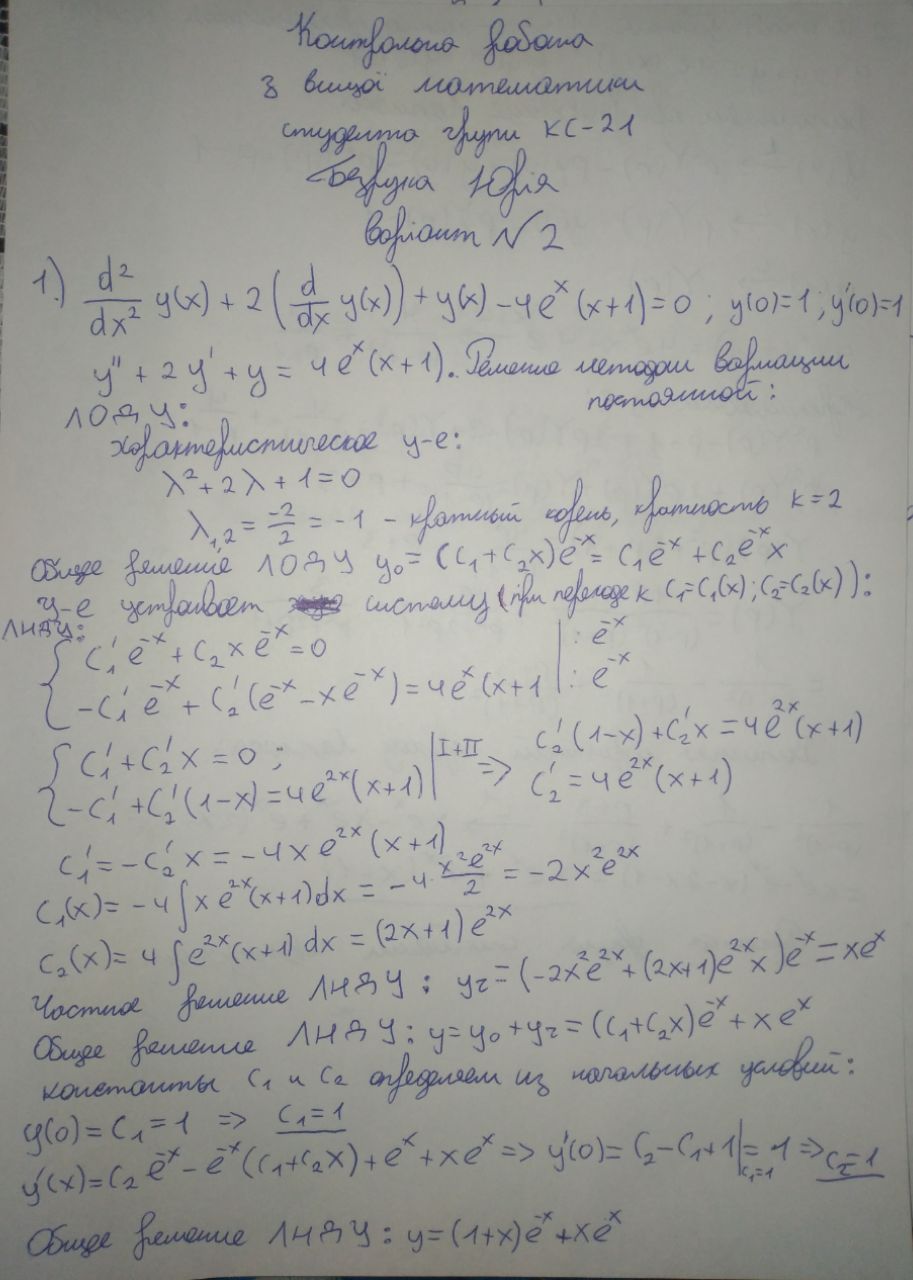 Контрольна робота
з вищої математики
студента групи КС-21
Безрука Юрія
Варіант №2
1.) d²/dx² y(x) + 2(d/dx y(x)) + y(x) - 4eˣ(x+1) = 0 ; y(0)=1 ; y'(0)=1
y'' + 2y' + y = 4eˣ(x+1). Решение методом вариации
постоянной:
ЛОДУ:
Характеристическое у-е:
λ² + 2λ + 1 = 0
λ₁,₂ = -2/2 = -1 - кратный корень, кратность k=2
Общее решение ЛОДУ y₀ = (C₁+C₂x)e⁻ˣ = C₁e⁻ˣ + C₂e⁻ˣx
У-е устраивает систему (при переходе к C₁=C₁(x); C₂=C₂(x)):
ЛНДУ:
{ C₁'e⁻ˣ + C₂xe⁻ˣ = 0 | : e⁻ˣ
-C₁'e⁻ˣ + C₂'(e⁻ˣ - xe⁻ˣ) = 4eˣ(x+1 | : e⁻ˣ
{ C₁' + C₂'x = 0 ; | I+II ⇒ C₂'(1-x) + C₂'x = 4e²ˣ(x+1)
-C₁' + C₂'(1-x) = 4e²ˣ(x+1) | C₂' = 4e²ˣ(x+1)
C₁' = -C₂'x = -4xe²ˣ(x+1)
C₁(x) = -4∫xe²ˣ(x+1)dx = -4·x²e²ˣ/2 = -2x²e²ˣ
C₂(x) = 4∫e²ˣ(x+1)dx = (2x+1)e²ˣ
Частное решение ЛНДУ: yr = (-2x²e²ˣ + (2x+1)e²ˣx)e⁻ˣ = xeˣ
Общее решение ЛНДУ: y = y₀ + yr = (C₁+C₂x)e⁻ˣ + xeˣ
константы C₁ и C₂ определяем из начальных условий:
y(0) = C₁ = 1 ⇒ C₁=1
y'(x) = C₂e⁻ˣ - e⁻ˣ(C₁+C₂x) + eˣ + xeˣ ⇒ y'(0) = C₂ - C₁ + 1 |C₁=1 = 1 ⇒ C₂=1
Общее решение ЛНДУ: y = (1+x)e⁻ˣ + xeˣ